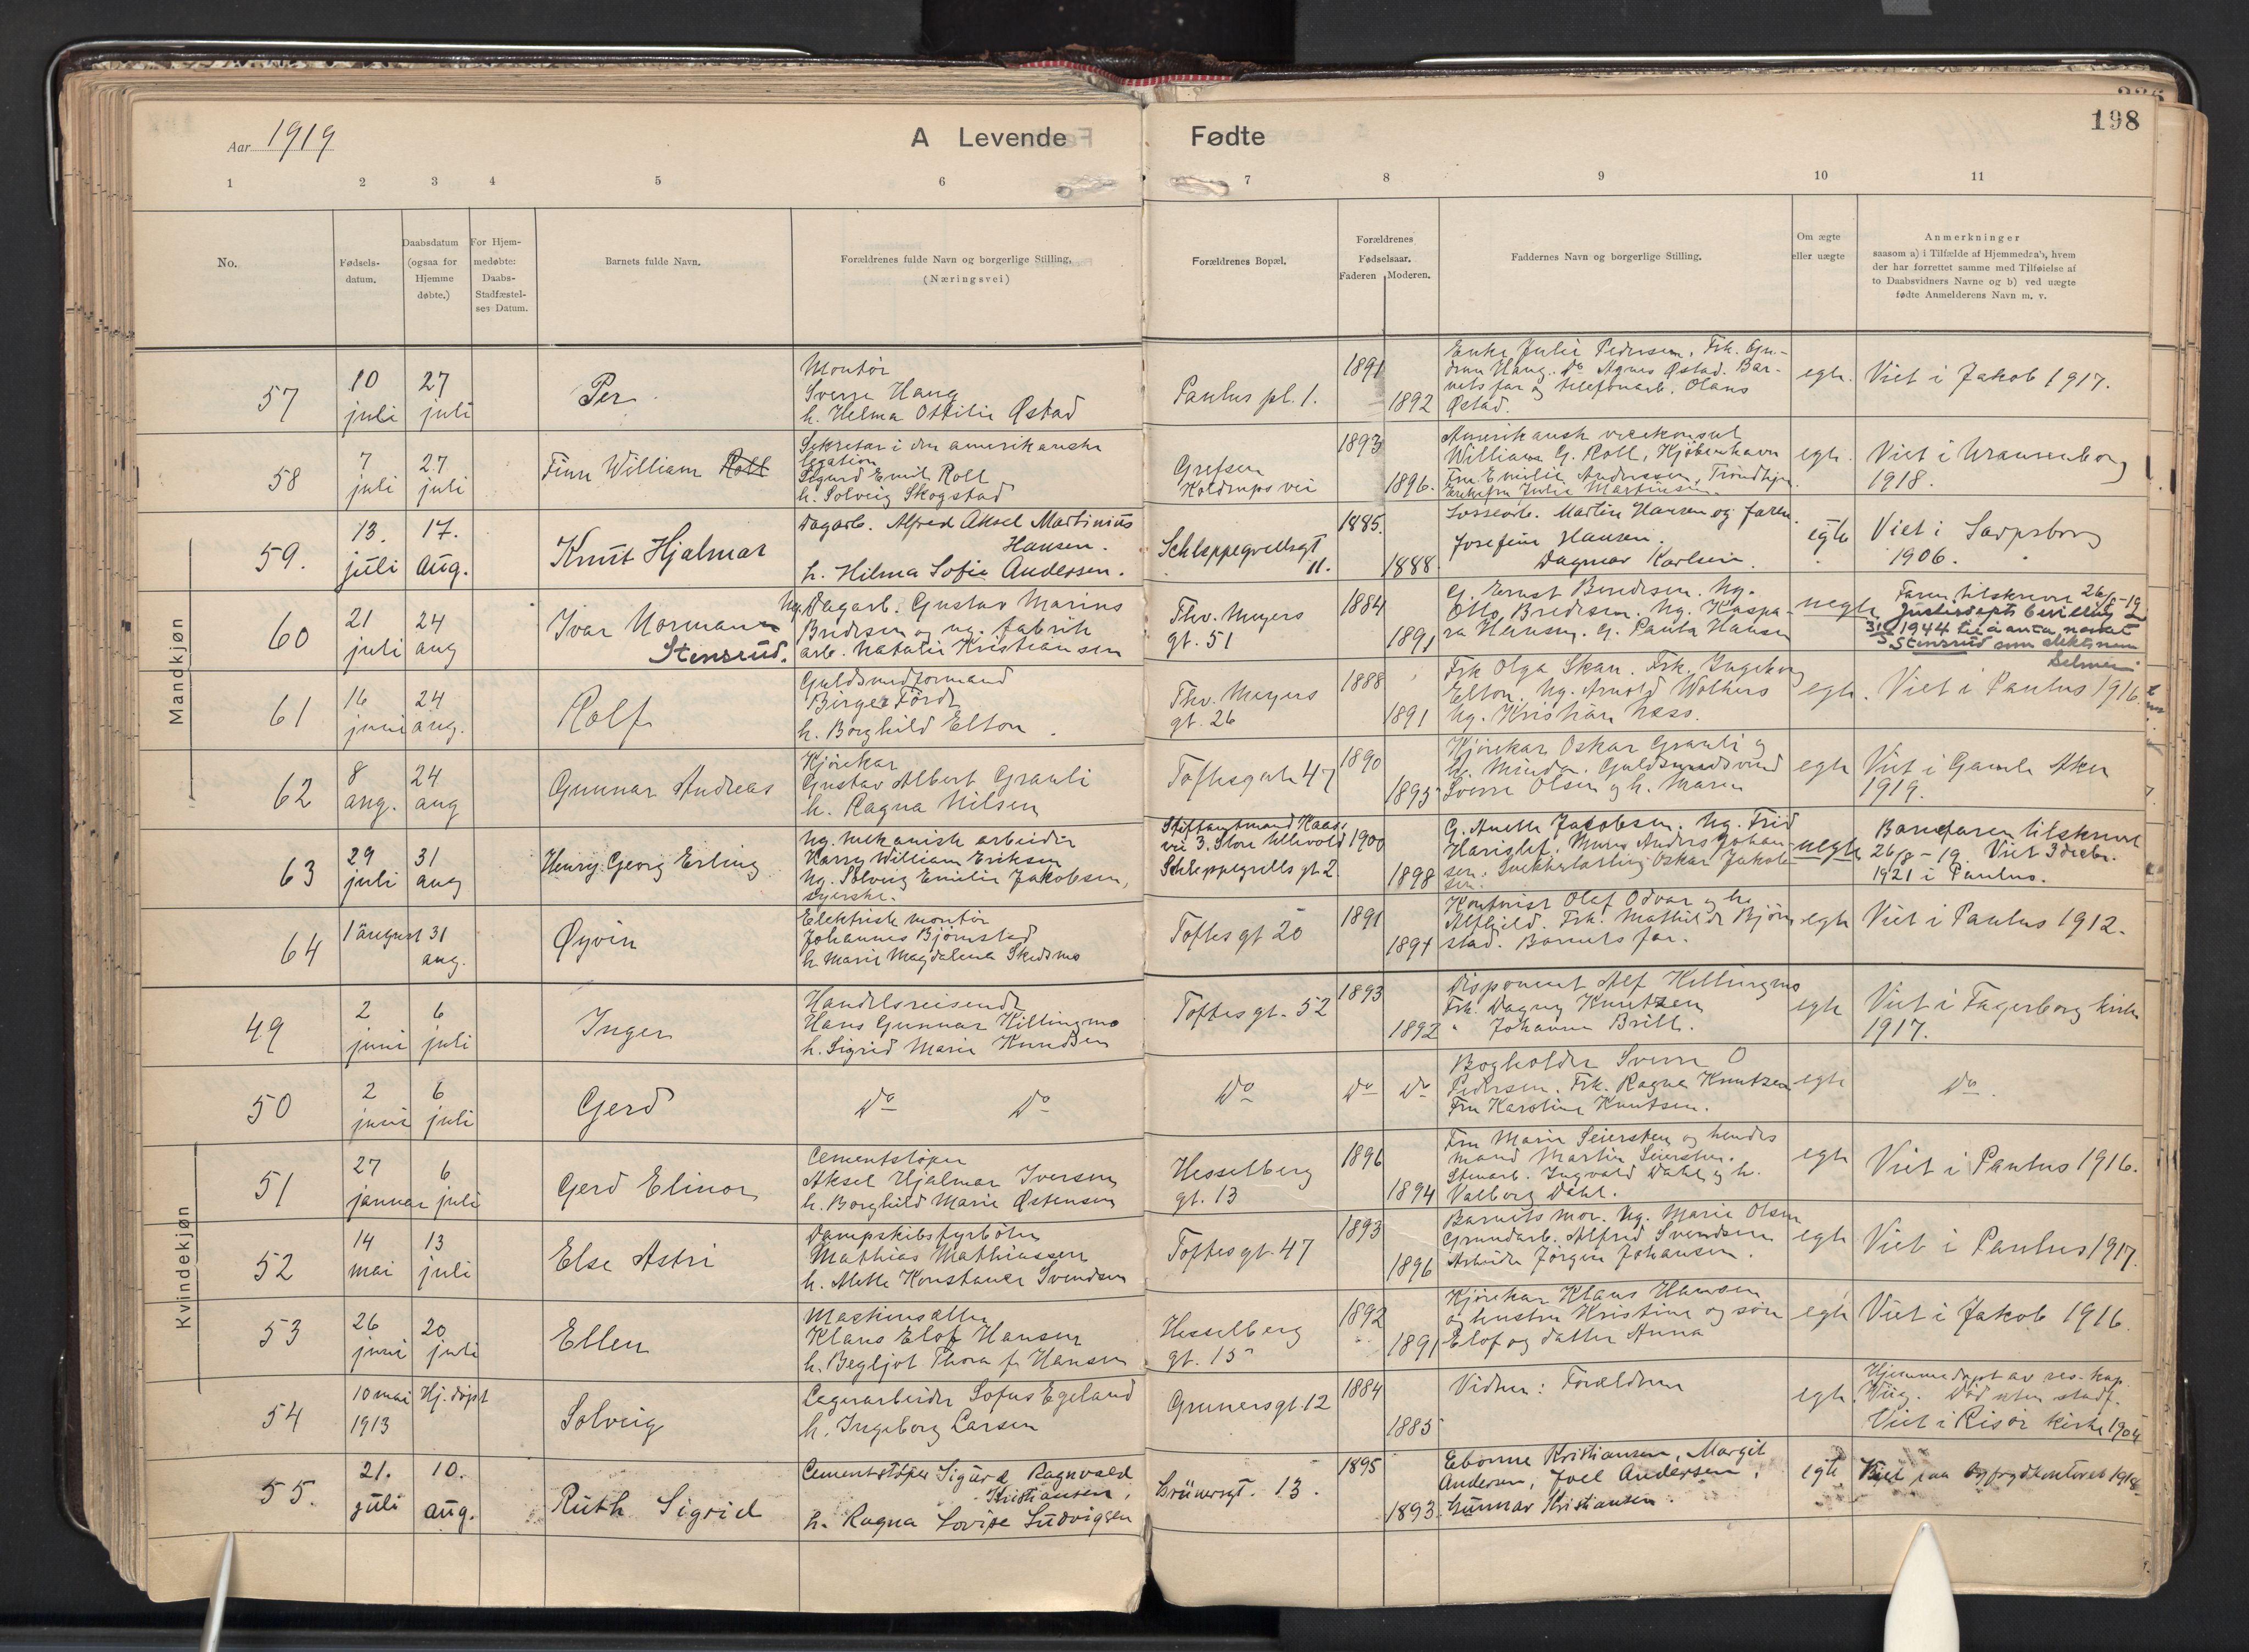 198
Aar 1919
A Levende Fødte
1 2 3 4 5 6 7 8 9 10 11
No.
Fødsels-
datum.
Daabsdatum
(ogsaa for
Hjemme
døbte.)
For Hjem-
medøbte:
Daabs-
Stadfæstel-
ses Datum.
Barnets fulde Navn.
Forældrenes fulde Navn og borgerlige Stilling.
(Næringsvei)
Forældrenes Bopæl.
Forældrenes
Fødselsaar.
Faderen Moderen.
Faddernes Navn og borgerlige Stilling.
Om ægte
eller uægte
Anmerkninger
saasom a) i Tilfælde af Hjemmedaab, hvem
der har forrettet samme med Tilføielse af
to Daabsvidners Navne og b) ved uægte
fødte Anmelderens Navn m. v.
Mandkjøn
57
10
juli
27
juli
Per
Montør
Sverre Haug
h. Helma Ottilie Østad
Paulus pl. 1.
1891
1892
Enke Julie Pedersen, Frk. Gu-
drun Haug. Do Agnes Østad. Bar-
nets far og telefonarb. Olaus
Østad.
egte.
Viet i Jakob 1917.
58
7
juli
27
juli
Finn William Roll
Sekretær i den amerikanske
legation
Sigurd Emil Roll
h. Solveig Skogstad
Grefsen
Koldrups vei
1893
1896.
Amerikansk vicekonsul
William G. Roll, Kjøbenhavn
Fru Emilie Anderssen, Trondhjem.
Enkefru Julie Martinsen.
egte.
Viet i Uranienborg
1918.
59.
13.
juli
17.
Aug.
Knut Hjalmar
Dagarb. Alfred Aksel Martinius
Hansen.
h. Hilma Sofie Andersen.
Schleppegrellsgt
11.
1885.
1888.
Martin Hansen og faren.
Josefine Hansen.
Dagmar Karlsen.
egte
Viet i Sarpsborg
1906.
60
21
juli
24
aug
Ivar Normann
Stensrud.
Ug. Dagarb. Gustav Marius
Bredesen og ug. fabrik
arb. Natalie Kristiansen
Thv. Meyers
gt. 51
1884
1891
G. Ernst Bredesen. Ug.
Otto Bredesen. Ug. Kaspa-
ra Hansen. G. Paula Hansen
uegte
Faren tilskrevet 26/8-19
Justisdepts bevilling
31/5 1944 til å anta navnet
Stensrud som slektsnavn
61
16
juni
24
aug.
Rolf
Guldsmedformand
Birger Förde
h. Borghild Elton.
Thv. Meyers
gt. 26
1888
1891
Frk Olga Skau. Frk. Ingeborg
Elton. Ug. Arnold Wolhers
Ug. Kristian Næss.
egte.
Viet i Paulus 1916.
62
8
aug.
24
aug
Gunnar Andreas
Kjørekar
Gustav Albert Grauli
h. Ragna Nilsen
Toftesgate 47
1890
1895
Kjørekar Oskar Grauli og
h. Minda. Guldsmedsvend
Sverre Olsen og h. Maren
egte
Viet i Gamle Aker
1919.
63
29
juli
31
aug
Henry Georg Erling
Ug. mekanisk arbeider
Harry William Eriksen
Ug. Solveig Emilie Jakobsen,
syerske.
Stiftamtmand Kaas
vei 3. Store Ullevold
Schleppegrells gt 2.
1900
1898
G. Anette Jakobsen. Ug. Frid
Anders Johan-
sen. Snekkerlærling Oskar Jakob-
sen.
uegte
Barnefaren tilskrevet
26/8-19. Viet 3 decbr.
1921 i Paulus.
64
1 august
31
aug.
Øyvin
Elektrisk montør
Johannes Bjørnstad
h. Marie Magdalena Skedsmo
Toftes gt 20
1891
1891
Kontorist Olaf Odvar og h.
Alfhild. Frk. Mathilde Bjørn-
stad. Barnets far.
egte
Viet i Paulus 1912.
Kvindekjøn
49
2
juni
6
juli
Inger
Handelsreisende
Hans Gunnar Killingmo
h. Sigrid Marie Knudsen
Toftesgt. 52
1893
1892
Disponent Alf Killingmo
Frk. Dagny Knutzen
" Johanne Brill.
egte
Viet i Fagerborg kirke
1917.
50
2
juni
6
juli
Gerd
Do Do
Do
Do
Do
Bogholder Sverre O
Pedersen. Frk. Ragna Knutzen
Fru Karoline Knutsen.
egte
Do.
51
27
januar
6
juli
Gerd Elinor
Cementstøper
Aksel Hjalmar Iversen
h. Borghild Marie Østensen
Hesselberg
gt. 13
1896
1894
Fru Marie Seiersten og hendes
mand Martin Seiersten.
Stenarb. Ingvald Dahl og h.
Valborg Dahl.
egte
Viet i Paulus 1916.
52
14
mai
13
juli
Else Astri
Dampskibsfyrbøter
Mathias Mathiassen
h. Mette Konstance Svendsen
Toftesgt. 47
1893
1896
Barnets mor. Ug. Marie Olsen
Grundarb. Alfred Svendsen
Arbeider Jørgen Johansen.
egte
Viet i Paulus 1917.
53
26
juni
20
juli
Ellen
Maskinsætter
Klaus Elof Hansen
h. Bergljot Thora f. Hansen
Hesselberg
gt. 15
1892
1891
Kjørekar Klaus Hansen
og hustru Kristine og søn
Elof og datter Anna
egte
Viet i Jakob 1916.
54
10 mai
1913
Hj. døpt
Solveig
Lagerarbeider Sofus Egeland
h. Ingeborg Larsen
Grunersgt. 12
1884
1885
Vidner: Forældrene
egte
Hjemmedøpt av res. kap.
Wiig. Død uten stadf.
Viet i Risør kirke 1904
55.
21.
juli
10.
aug.
Ruth Sigrid
Cementstøper Sigurd Ragnvald
Kristiansen,
h. Ragna Lovise Ludvigsen
Grünersgt. 13.
1895
1893.
Ebonne Kristiansen, Margit
Andersen, Joel Andersen,
Gunnar Kristiansen.
egte
Viet paa byfogdkontoret 1918.